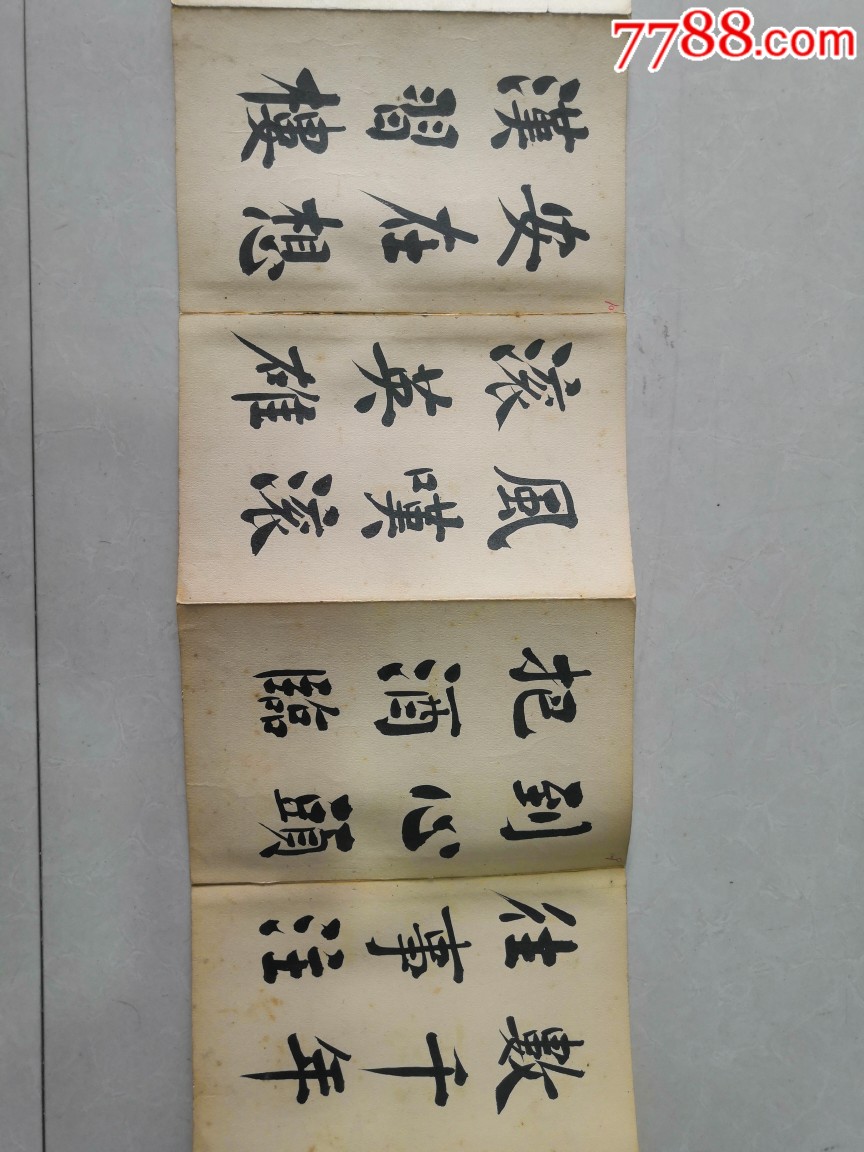 7788.com
數千年
往事注
到心頭
把酒臨
風嘆滾
滾英雄
安在想
漢習樓